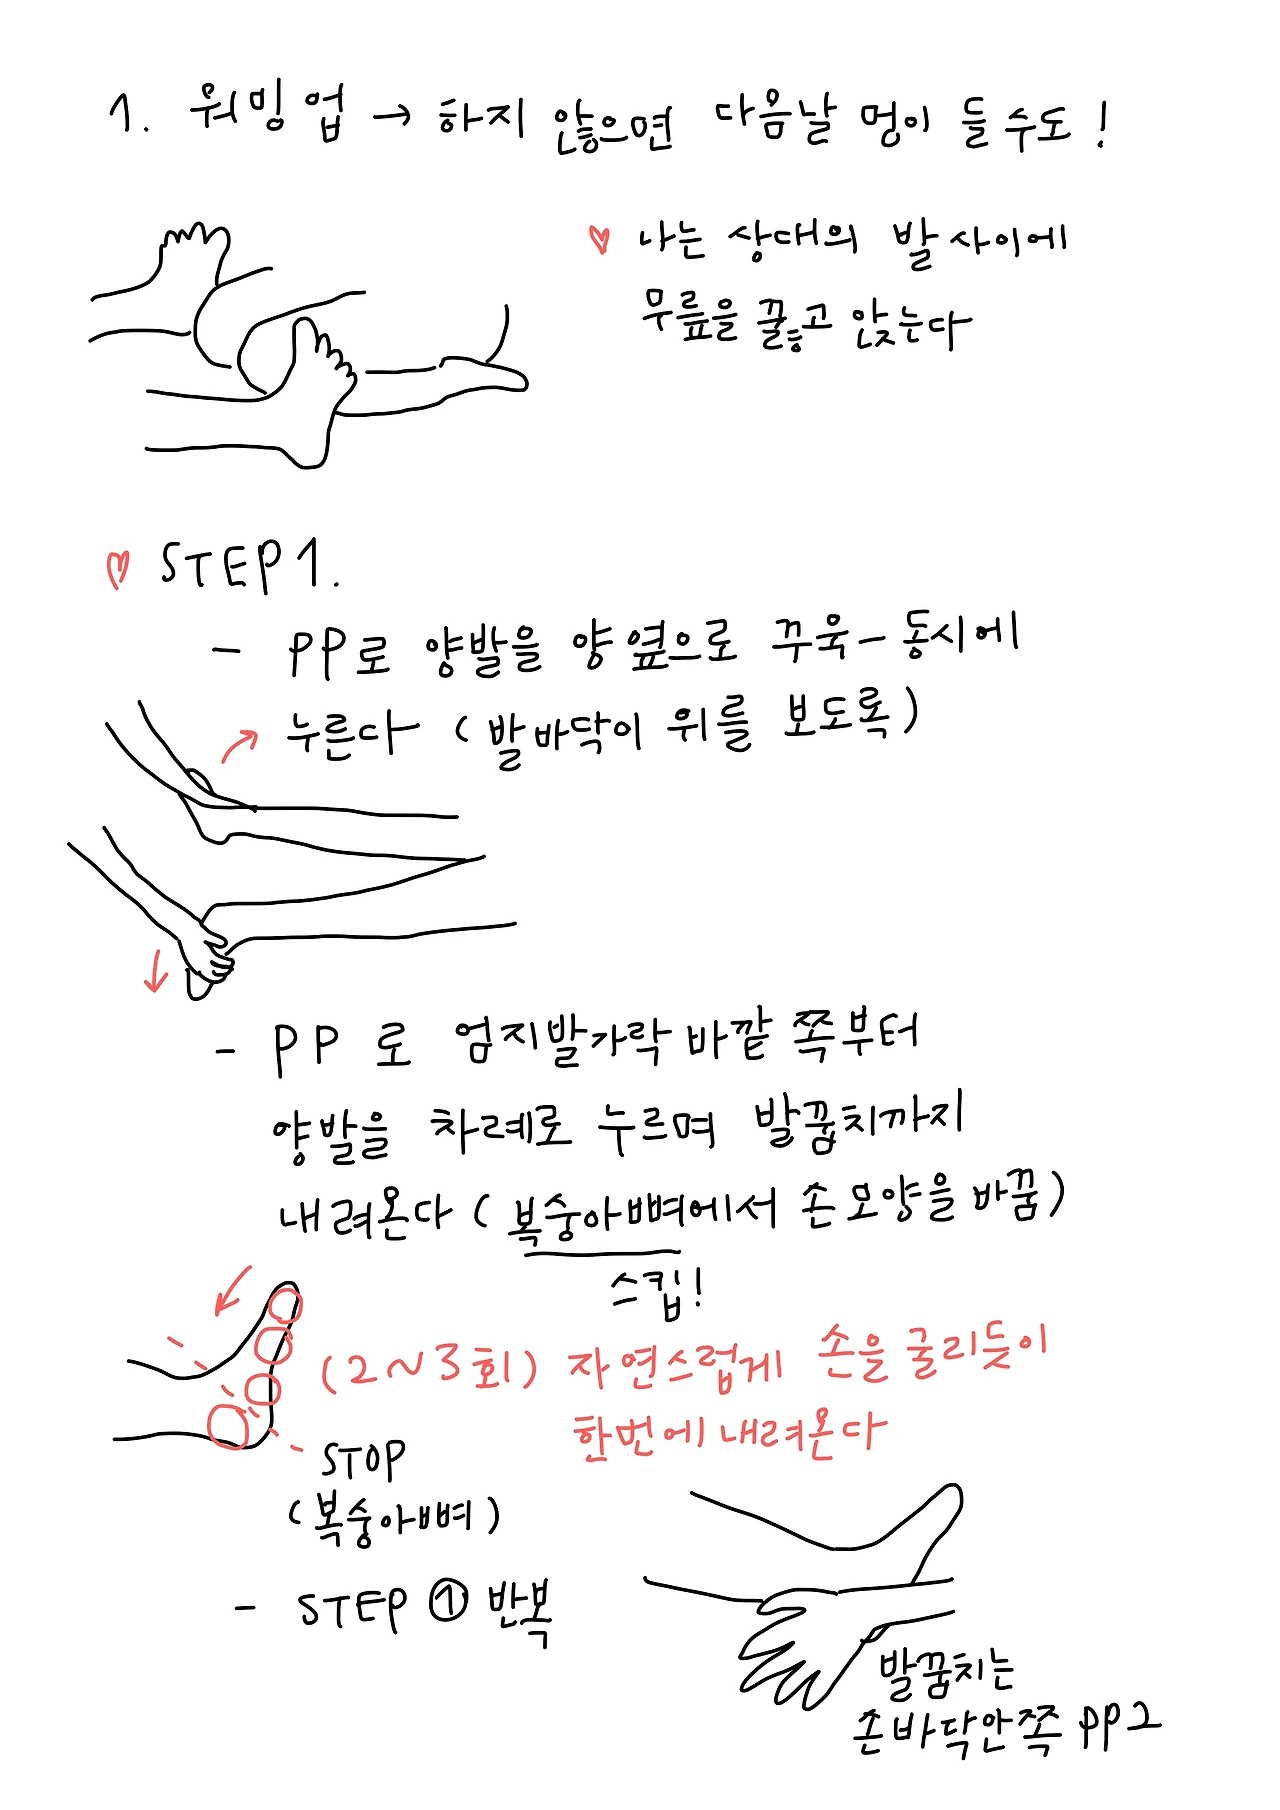 1. 워밍업 → 하지 않으면 다음날 멍이 들 수도!
♥ 나는 상대의 발 사이에
무릎을 꿇고 앉는다
♥ STEP 1.
- PP로 양발을 양 옆으로 꾸욱- 동시에
누른다 (발바닥이 위를 보도록)
- PP로 엄지발가락 바깥 쪽부터
양발을 차례로 누르며 발꿈치까지
내려온다 (복숭아뼈에서 손 모양을 바꿈)
스킵!
(2~3회) 자연스럽게 손을 굴리듯이
한번에 내려온다
STOP
(복숭아뼈)
- STEP ① 반복
발꿈치는
손바닥안쪽 PP2